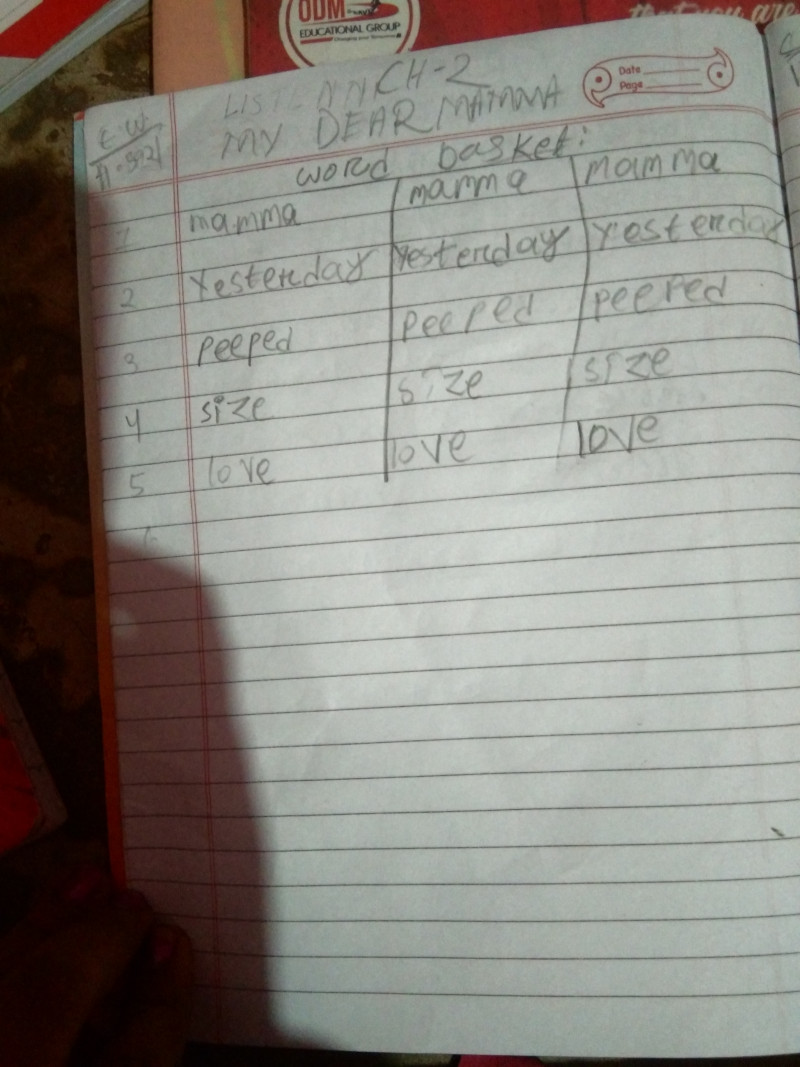 ODM
EDUCATIONAL GROUP
that you are
CH-2
Date
Page
MY DEAR MAMMA
word basket:
1 mamma mamma mamma
2 Yesterday Yesterday Yesterday
3 peeped peeped peeped
4 size size size
5 love love love
6